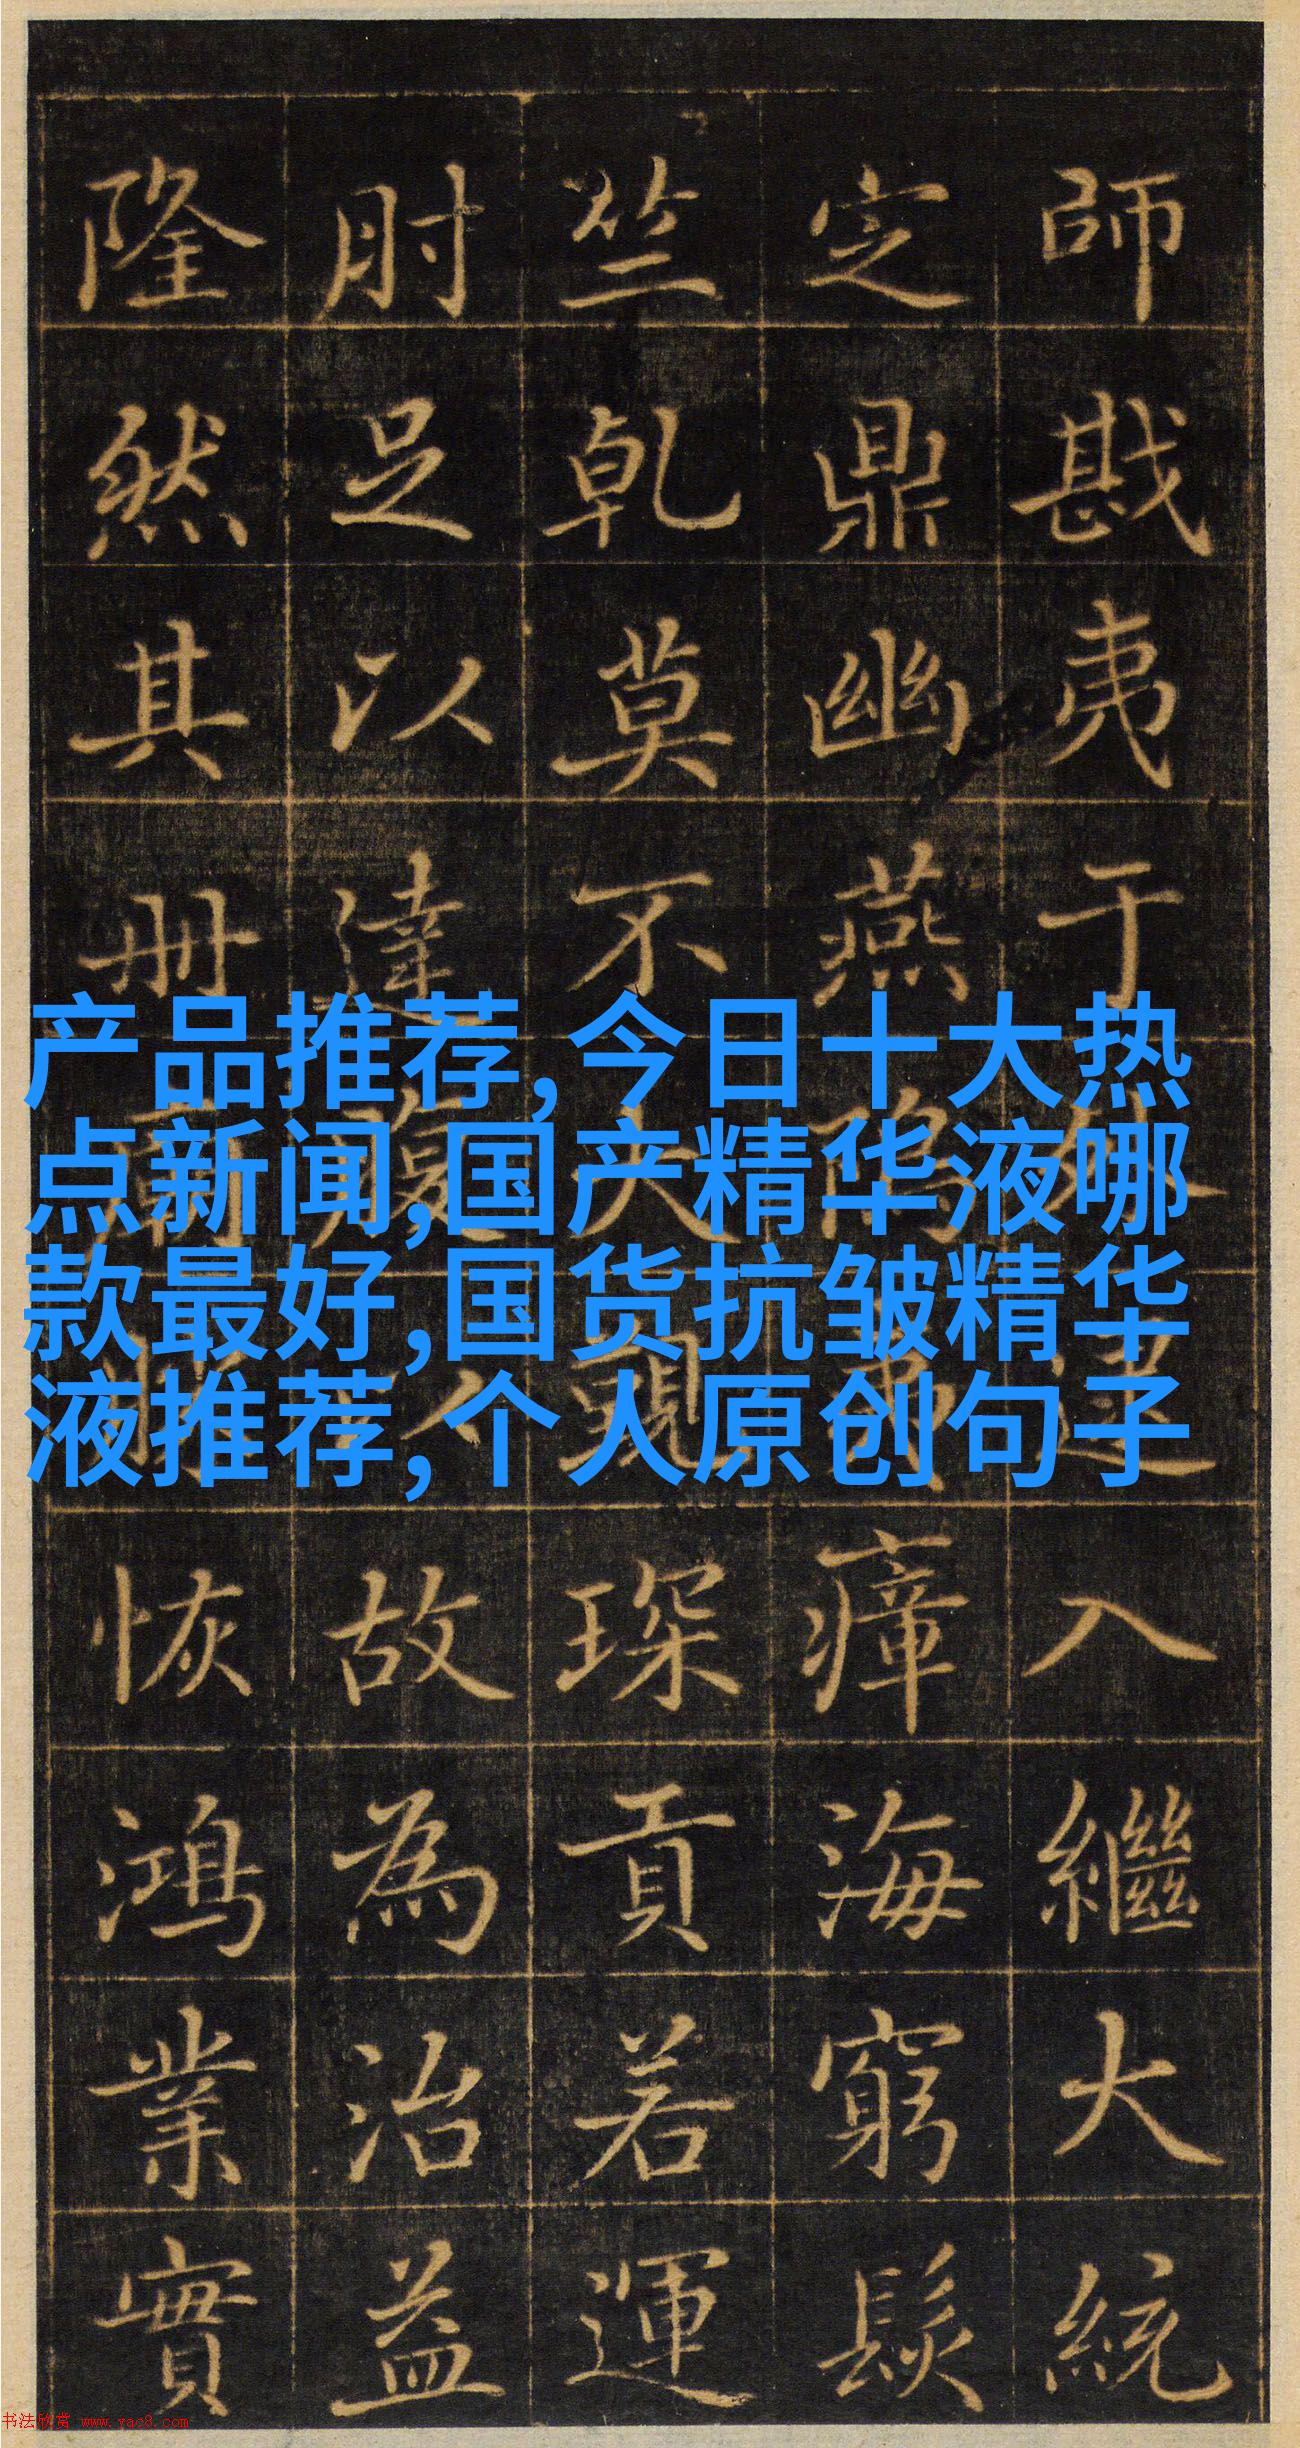 師戡夷于入繼大統
定鼎幽燕瘴海窮髮
竺乾莫不琛貢若運
肘足以達故為治益
隆然其冊恢鴻業實
产品推荐,今日十大热
点新闻,国产精华液哪
款最好,国货抗皱精华
液推荐,个人原创句子
书法欣赏 www.yac8.com